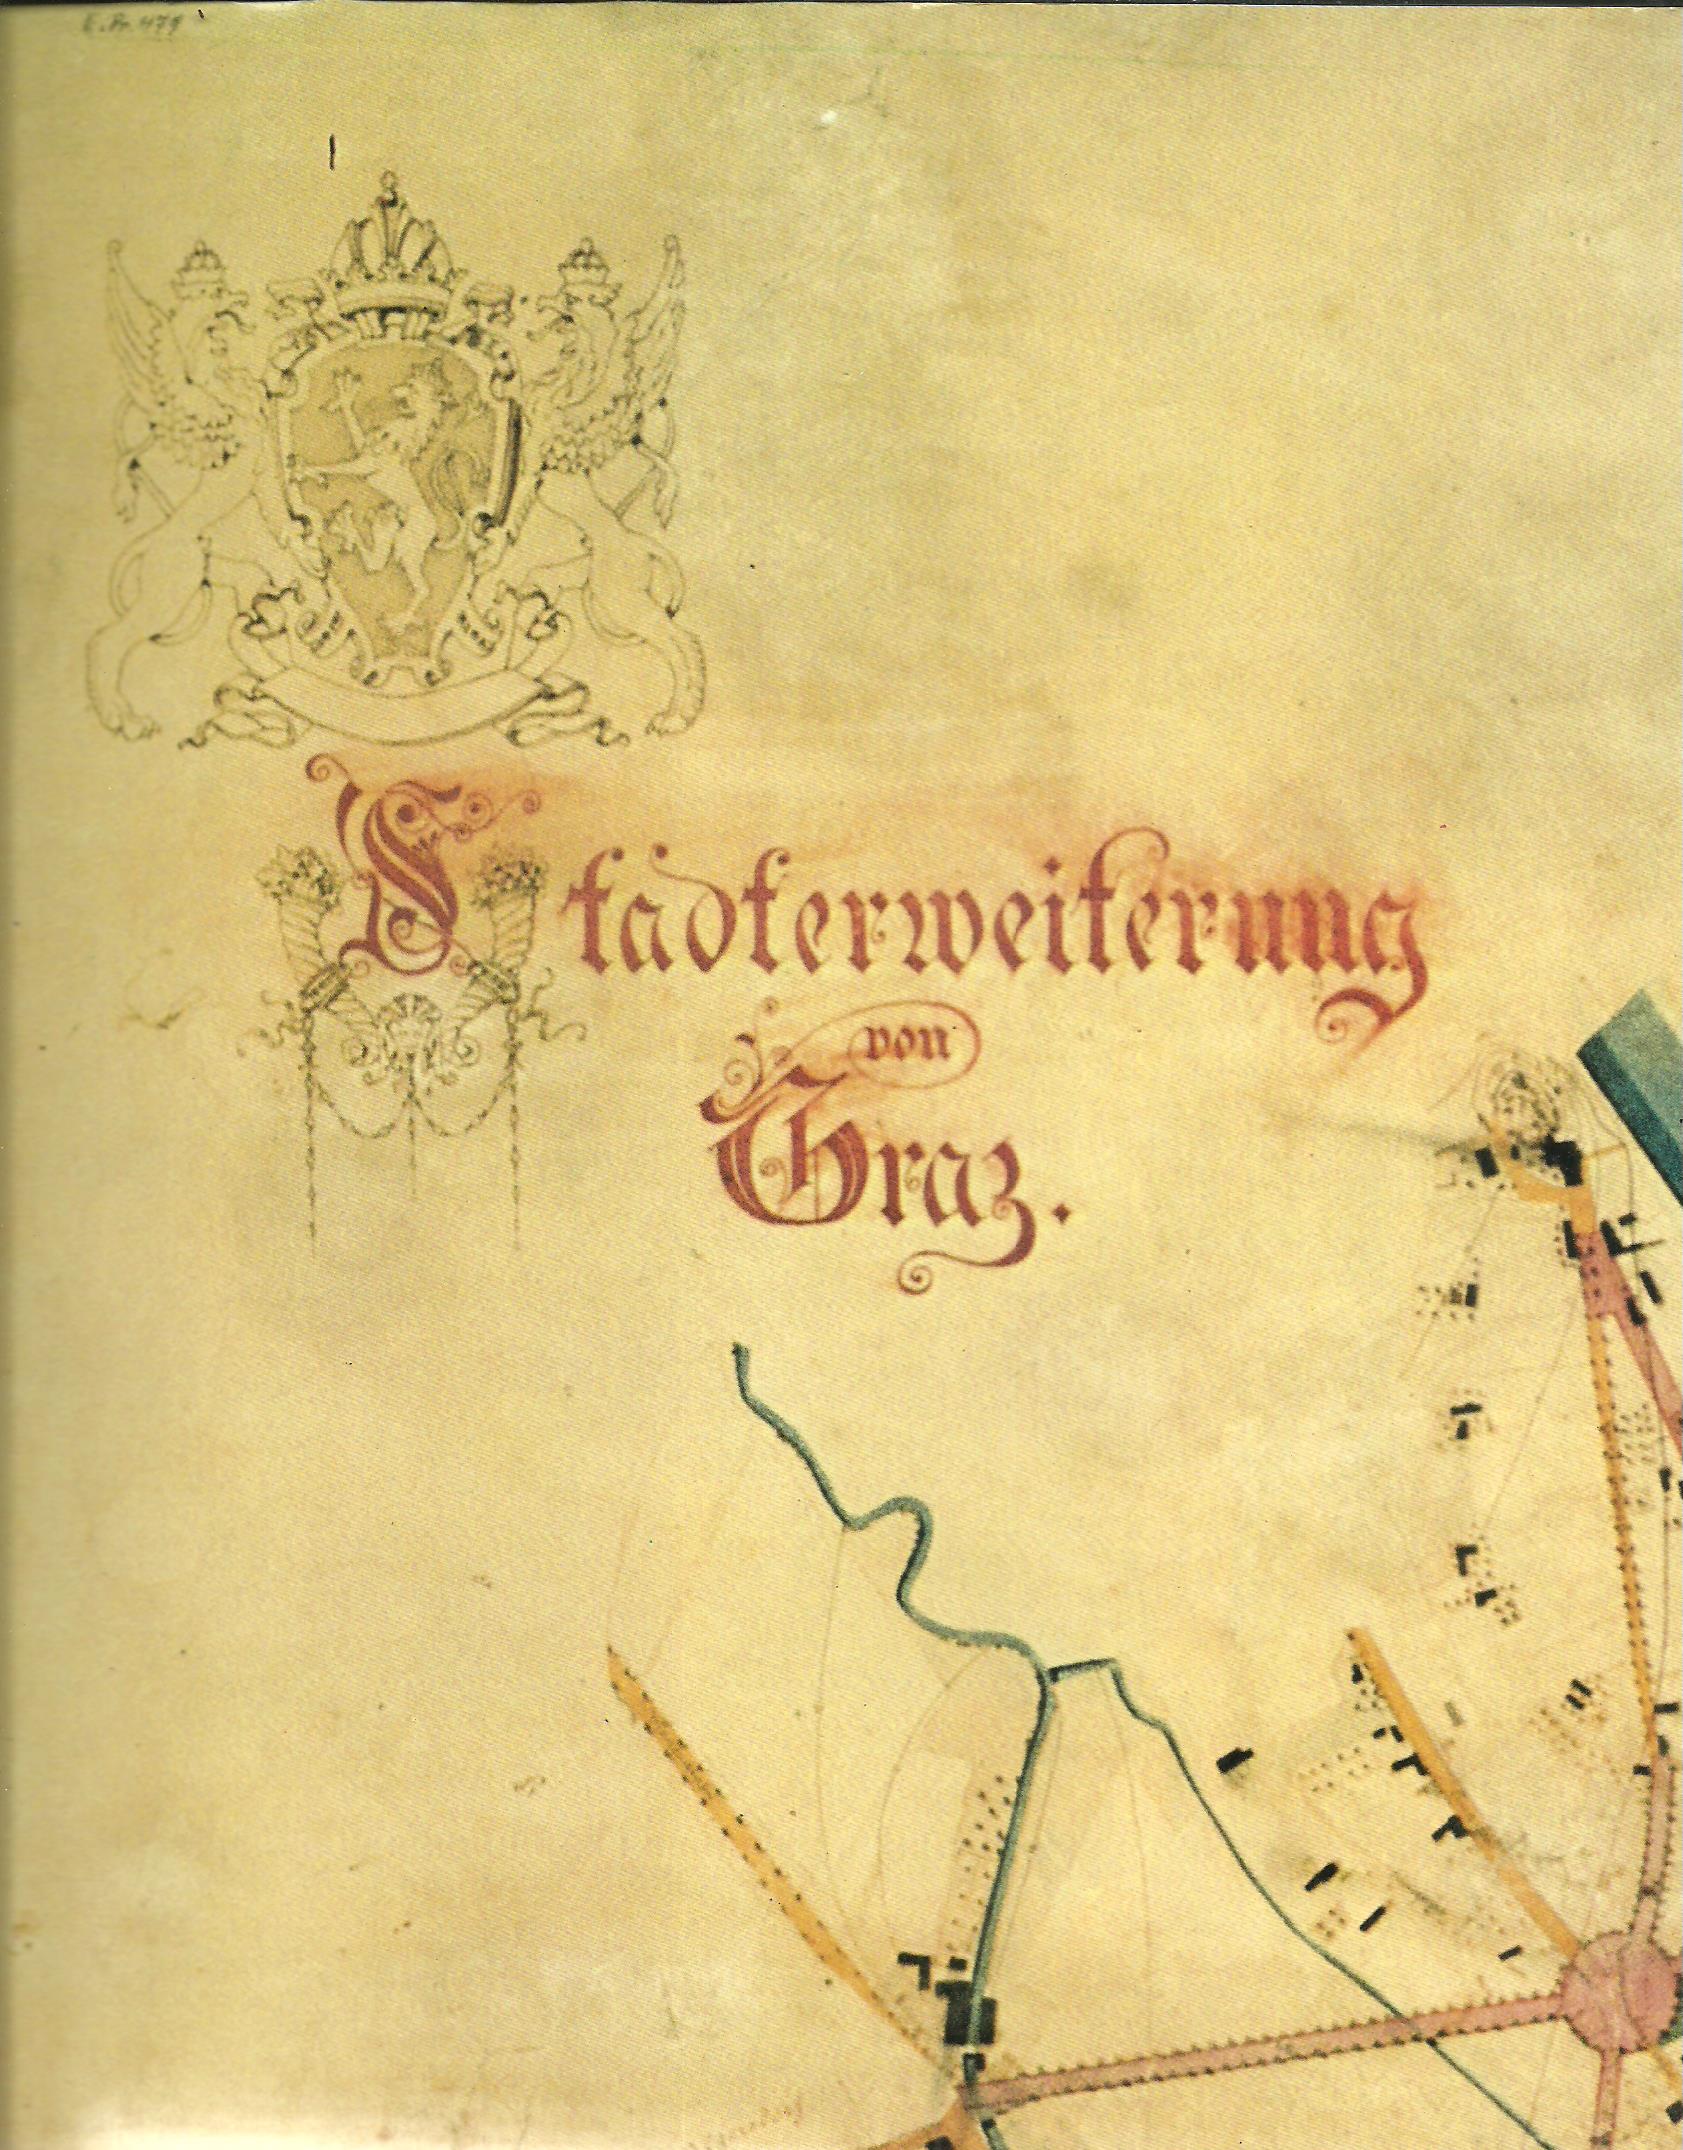 Stadterweiterung
von
Graz.